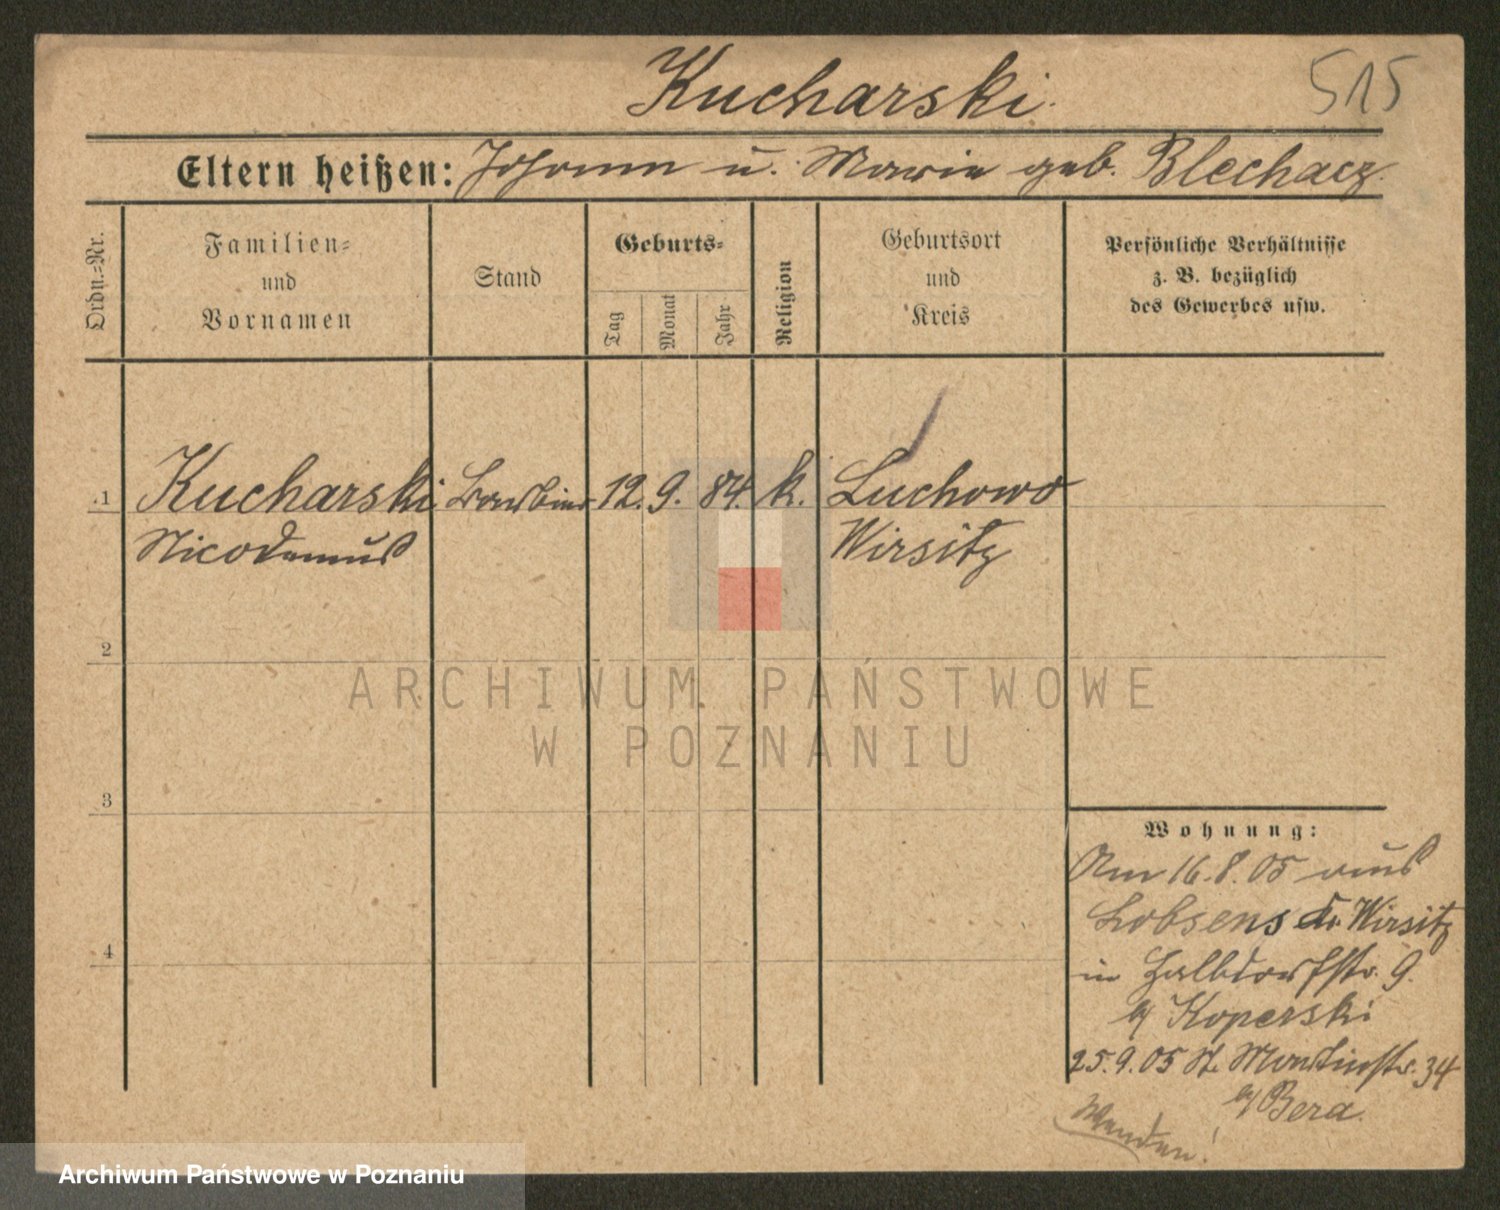 Kucharski.
515
Eltern heißen: Johann u. Marie geb. Blechacz.
Ordn.-Nr.
Familien-
und
Vornamen
Stand
Geburts-
Tag
Monat
Jahr
Religion
Geburtsort
und
Kreis
Persönliche Verhältnisse
z. B. bezüglich
des Gewerbes usw.
1 Kucharski Barbier 12. 9. 84. k. Luchowo
Nicodemus Wirsitz
2
3
4
Wohnung:
Am 16.8.05 aus
Lobsens Kr. Wirsitz
in Halbdorfstr. 9.
b/ Koperski
25.9.05 St. Martinstr. 34
b/ Bera.
Wenden!
ARCHIWUM PAŃSTWOWE
W POZNANIU
Archiwum Państwowe w Poznaniu